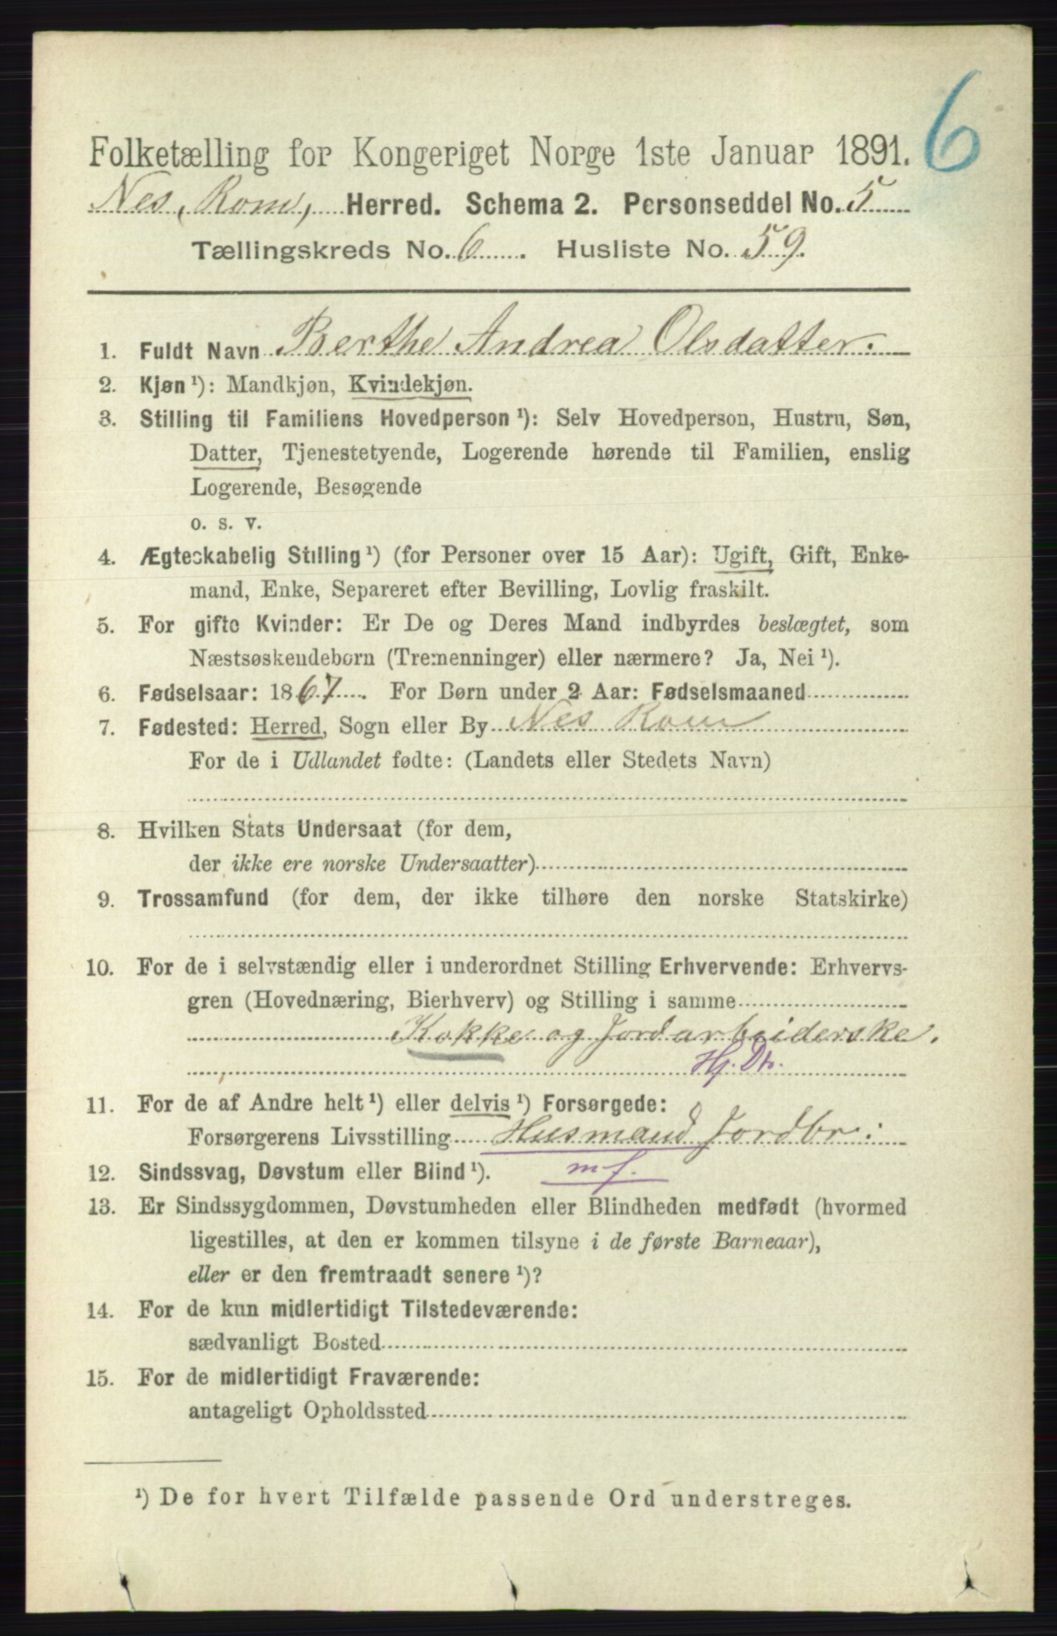 6
Folketælling for Kongeriget Norge 1ste Januar 1891.
Nes, Rom, Herred. Schema 2. Personseddel No. 5
Tællingskreds No. 6. Husliste No. 59.
1. Fuldt Navn Berthe Andrea Olsdatter.
2. Kjøn ¹): Mandkjøn, Kvindekjøn.
3. Stilling til Familiens Hovedperson ¹): Selv Hovedperson, Hustru, Søn,
Datter, Tjenestetyende, Logerende hørende til Familien, enslig
Logerende, Besøgende
o. s. v.
4. Ægteskabelig Stilling ¹) (for Personer over 15 Aar): Ugift, Gift, Enke-
mand, Enke, Separeret efter Bevilling, Lovlig fraskilt.
5. For gifte Kvinder: Er De og Deres Mand indbyrdes beslægtet, som
Næstsøskendebørn (Tremenninger) eller nærmere? Ja, Nei ¹).
6. Fødselsaar: 1867. For Børn under 2 Aar: Fødselsmaaned
7. Fødested: Herred, Sogn eller By Nes Rom
For de i Udlandet fødte: (Landets eller Stedets Navn)
8. Hvilken Stats Undersaat (for dem,
der ikke ere norske Undersaatter)
9. Trossamfund (for dem, der ikke tilhøre den norske Statskirke)
10. For de i selvstændig eller i underordnet Stilling Erhvervende: Erhvervs-
gren (Hovednæring, Bierhverv) og Stilling i samme
Kokke og Jordarbeiderske.
Hj. Dt.
11. For de af Andre helt ¹) eller delvis ¹) Forsørgede:
Forsørgerens Livsstilling Husmand Jordbr:
12. Sindssvag, Døvstum eller Blind ¹). mf.
13. Er Sindssygdommen, Døvstumheden eller Blindheden medfødt (hvormed
ligestilles, at den er kommen tilsyne i de første Barneaar),
eller er den fremtraadt senere ¹)?
14. For de kun midlertidigt Tilstedeværende:
sædvanligt Bosted
15. For de midlertidigt Fraværende:
antageligt Opholdssted
¹) De for hvert Tilfælde passende Ord understreges.